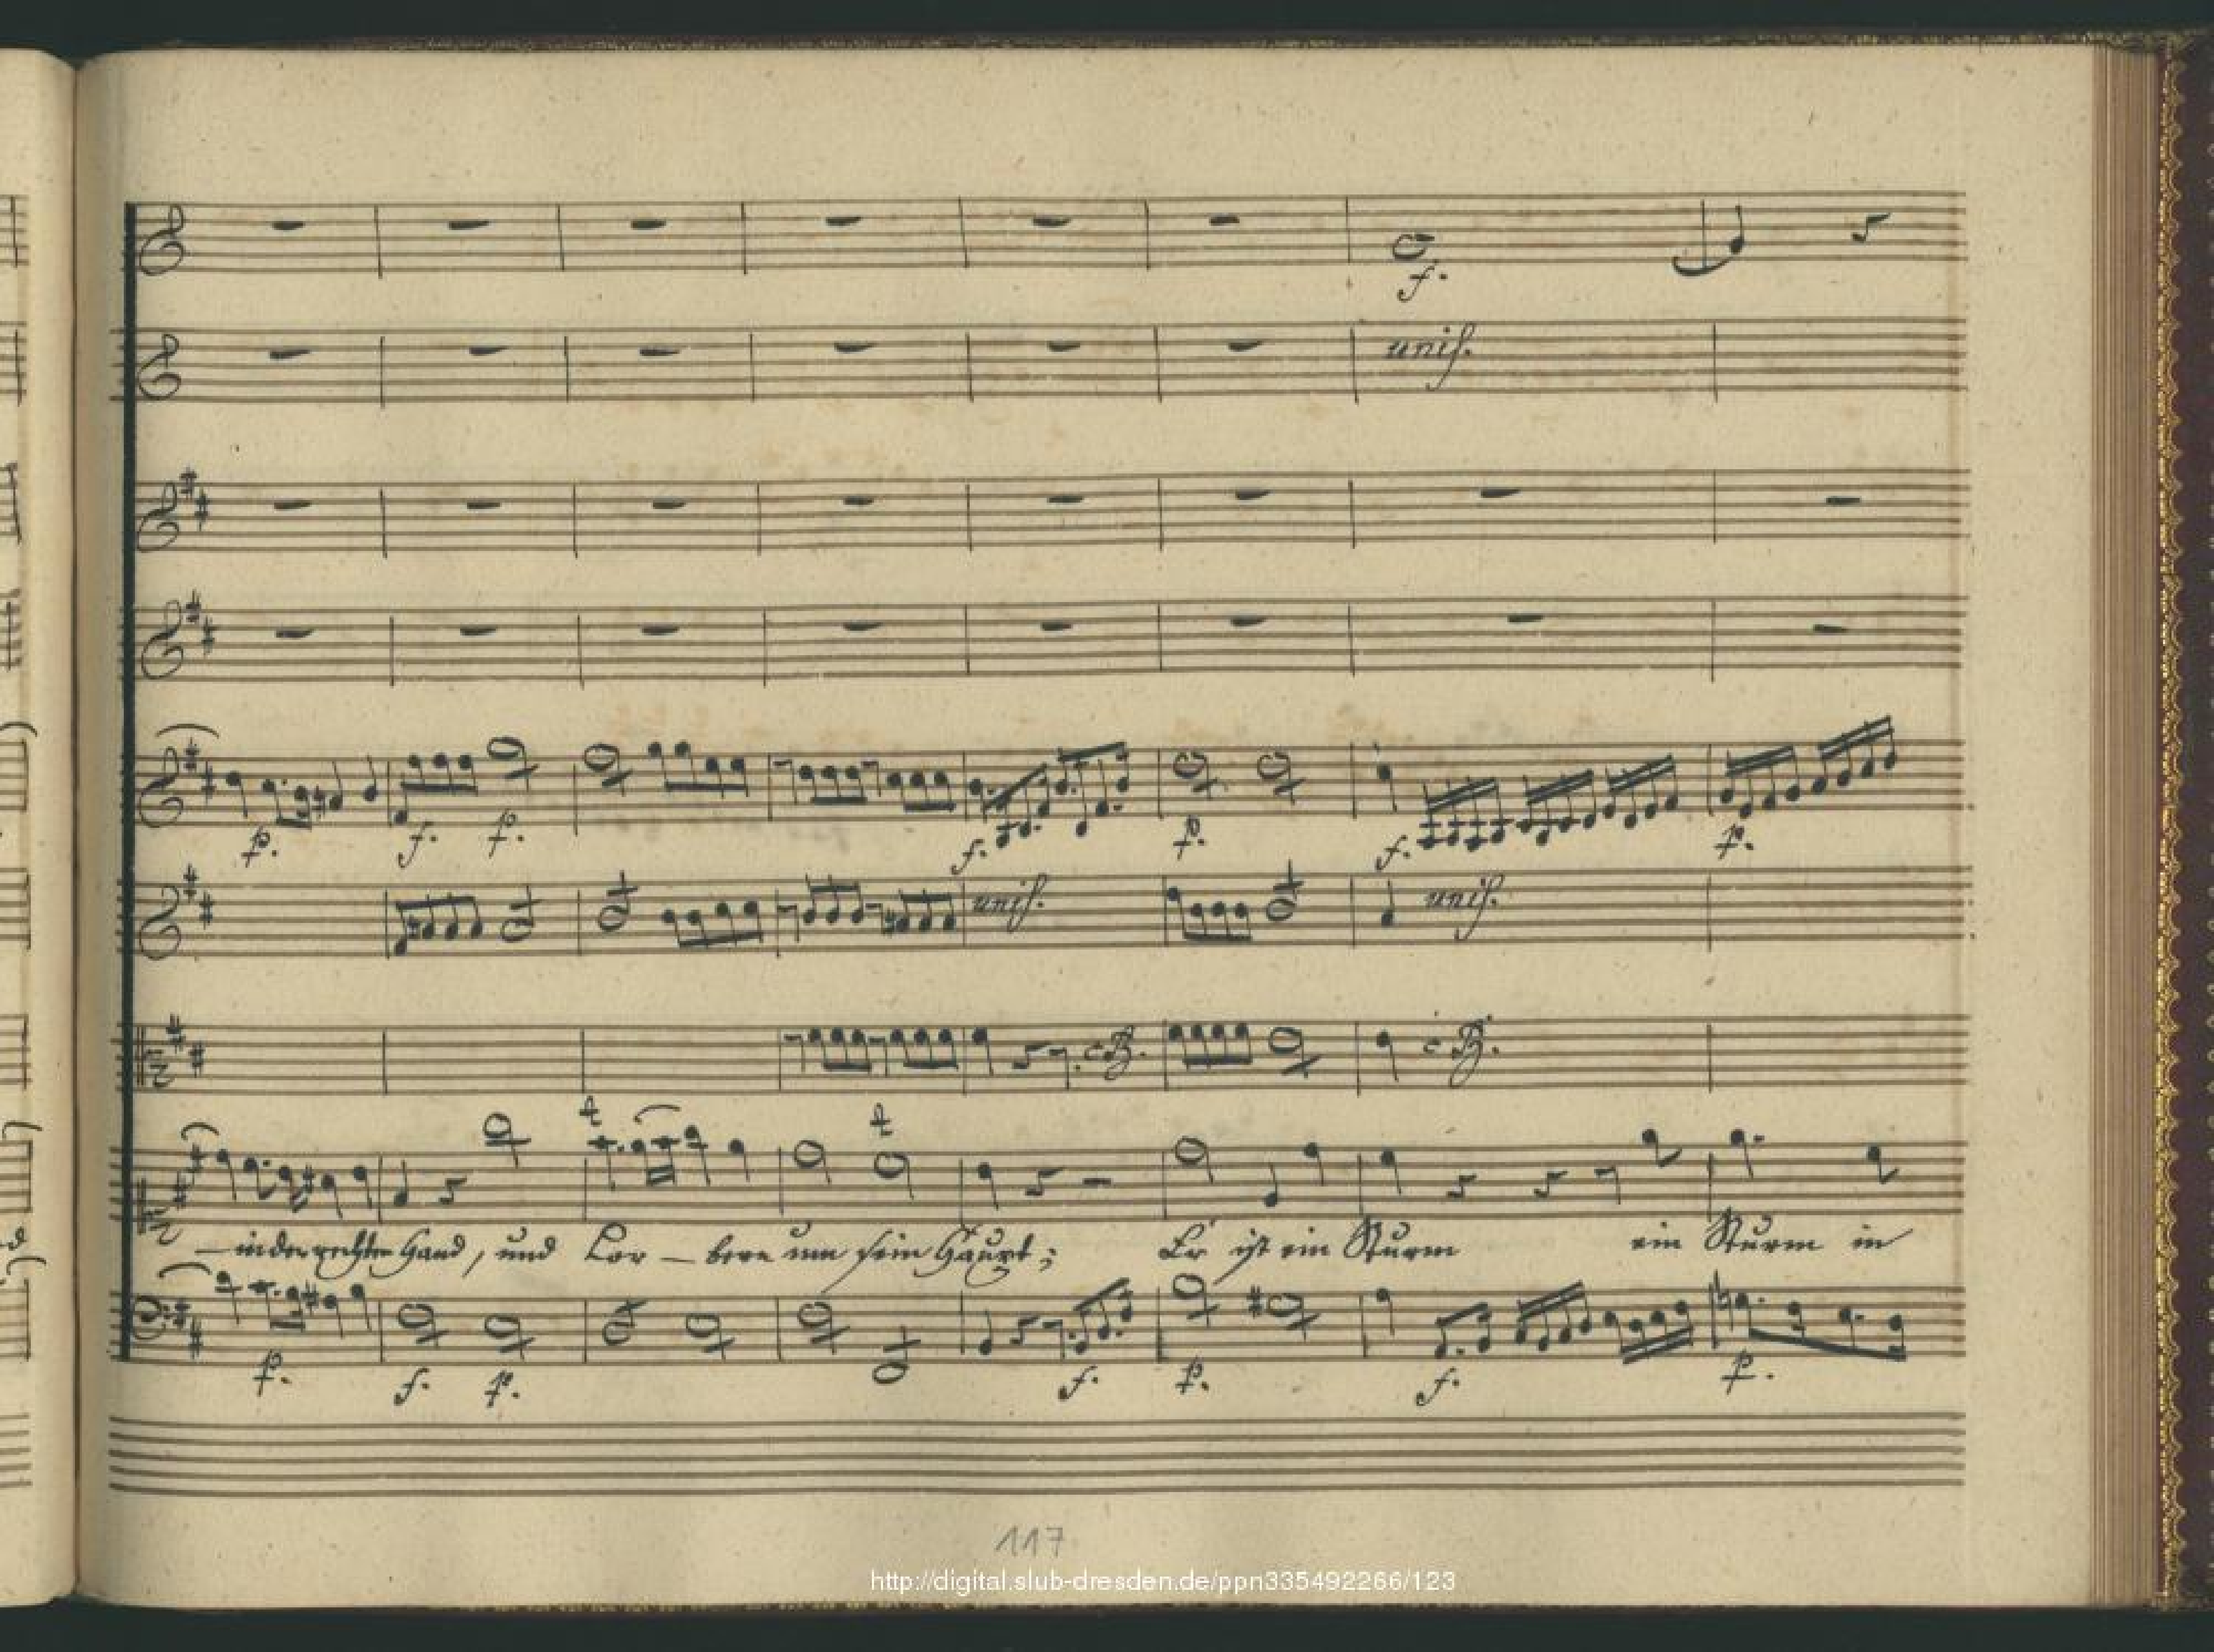 f.
unis.
p. f. p. f. p. f. p.
unis. unis.
c B. c B.
– in der rechten Hand, und Lor – bern um sein Haupt; Er ist ein Sturm ein Sturm in
p. f. p. f. p. f. p.
117
http://digital.slub-dresden.de/ppn335492266/123